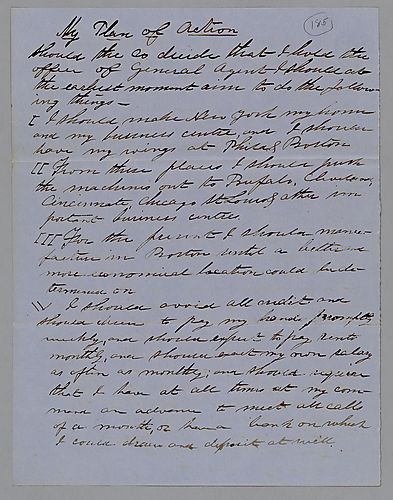 185
My Plan of Action
Should the Co decide that I hold the
office of General Agent I should at
the earliest moment aim to do the follow-
ing things—
I I should make New York my home
and my business centre, and I should
have my wings at Phila & Boston
II From these places I should push
the machines out to Buffalo, Cleveland,
Cincinnati, Chicago St Louis & other im
portant business centres.
III For the present I should manu-
facture in Boston until a better &
more economical location could be de-
termined on
IV I should avoid all credit and
should desire to pay my hands promptly
weekly, and should expect to pay rents
monthly, and should exact my own salary
as often as monthly; and should require
that I have at all times at my com-
mand an advance to meet all calls
of a month, or have a bank on which
I could draw and deposit at will.